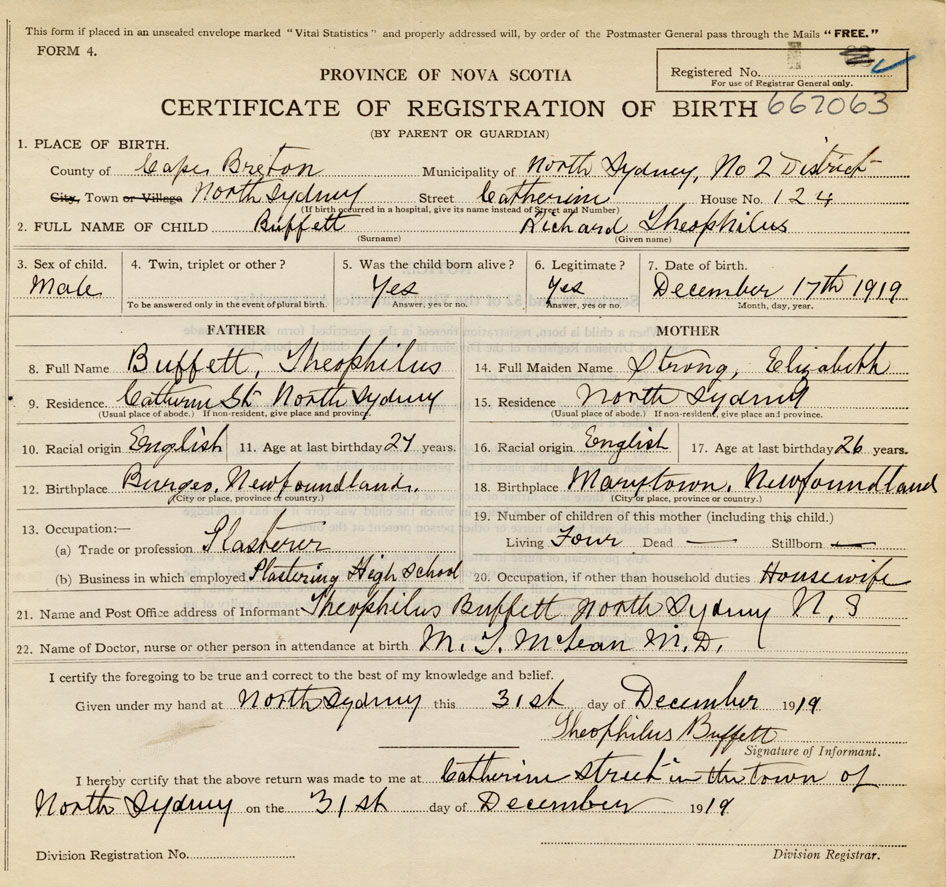 This form if placed in an unsealed envelope marked "Vital Statistics" and properly addressed will, by order of the Postmaster General pass through the Mails "FREE."
FORM 4.
Registered No.
For use of Registrar General only.
PROVINCE OF NOVA SCOTIA
CERTIFICATE OF REGISTRATION OF BIRTH 667063
(BY PARENT OR GUARDIAN)
1. PLACE OF BIRTH.
County of Cape Breton Municipality of North Sydney, No 2 District
City, Town or Village North Sydney Street Catherine House No. 124
(If birth occurred in a hospital, give its name instead of Street and Number)
2. FULL NAME OF CHILD Buffett Richard Theophilus
(Surname) (Given name)
3. Sex of child. 4. Twin, triplet or other? 5. Was the child born alive? 6. Legitimate? 7. Date of birth.
Male Yes Yes December 17th 1919
To be answered only in the event of plural birth. Answer, yes or no. Answer, yes or no. Month, day, year.
FATHER MOTHER
8. Full Name Buffett, Theophilus 14. Full Maiden Name Strong, Elizabeth
9. Residence Catherine St North Sydney 15. Residence North Sydney
(Usual place of abode.) If non-resident, give place and province. (Usual place of abode.) If non-resident, give place and province.
10. Racial origin English 11. Age at last birthday 27 years. 16. Racial origin English 17. Age at last birthday 26 years.
12. Birthplace Burgeo, Newfoundland. 18. Birthplace Marystown, Newfoundland
(City or place, province or country.) (City or place, province or country.)
13. Occupation:— 19. Number of children of this mother (including this child.)
(a) Trade or profession Plasterer Living Four Dead — Stillborn —
(b) Business in which employed Plastering High School 20. Occupation, if other than household duties Housewife
21. Name and Post Office address of Informant Theophilus Buffett North Sydney N, S
22. Name of Doctor, nurse or other person in attendance at birth M. T. McLean M.D.
I certify the foregoing to be true and correct to the best of my knowledge and belief.
Given under my hand at North Sydney this 31st day of December 1919
Theophilus Buffett
Signature of Informant.
I hereby certify that the above return was made to me at Catherine Street in the town of
North Sydney on the 31st day of December 1919
Division Registration No. Division Registrar.